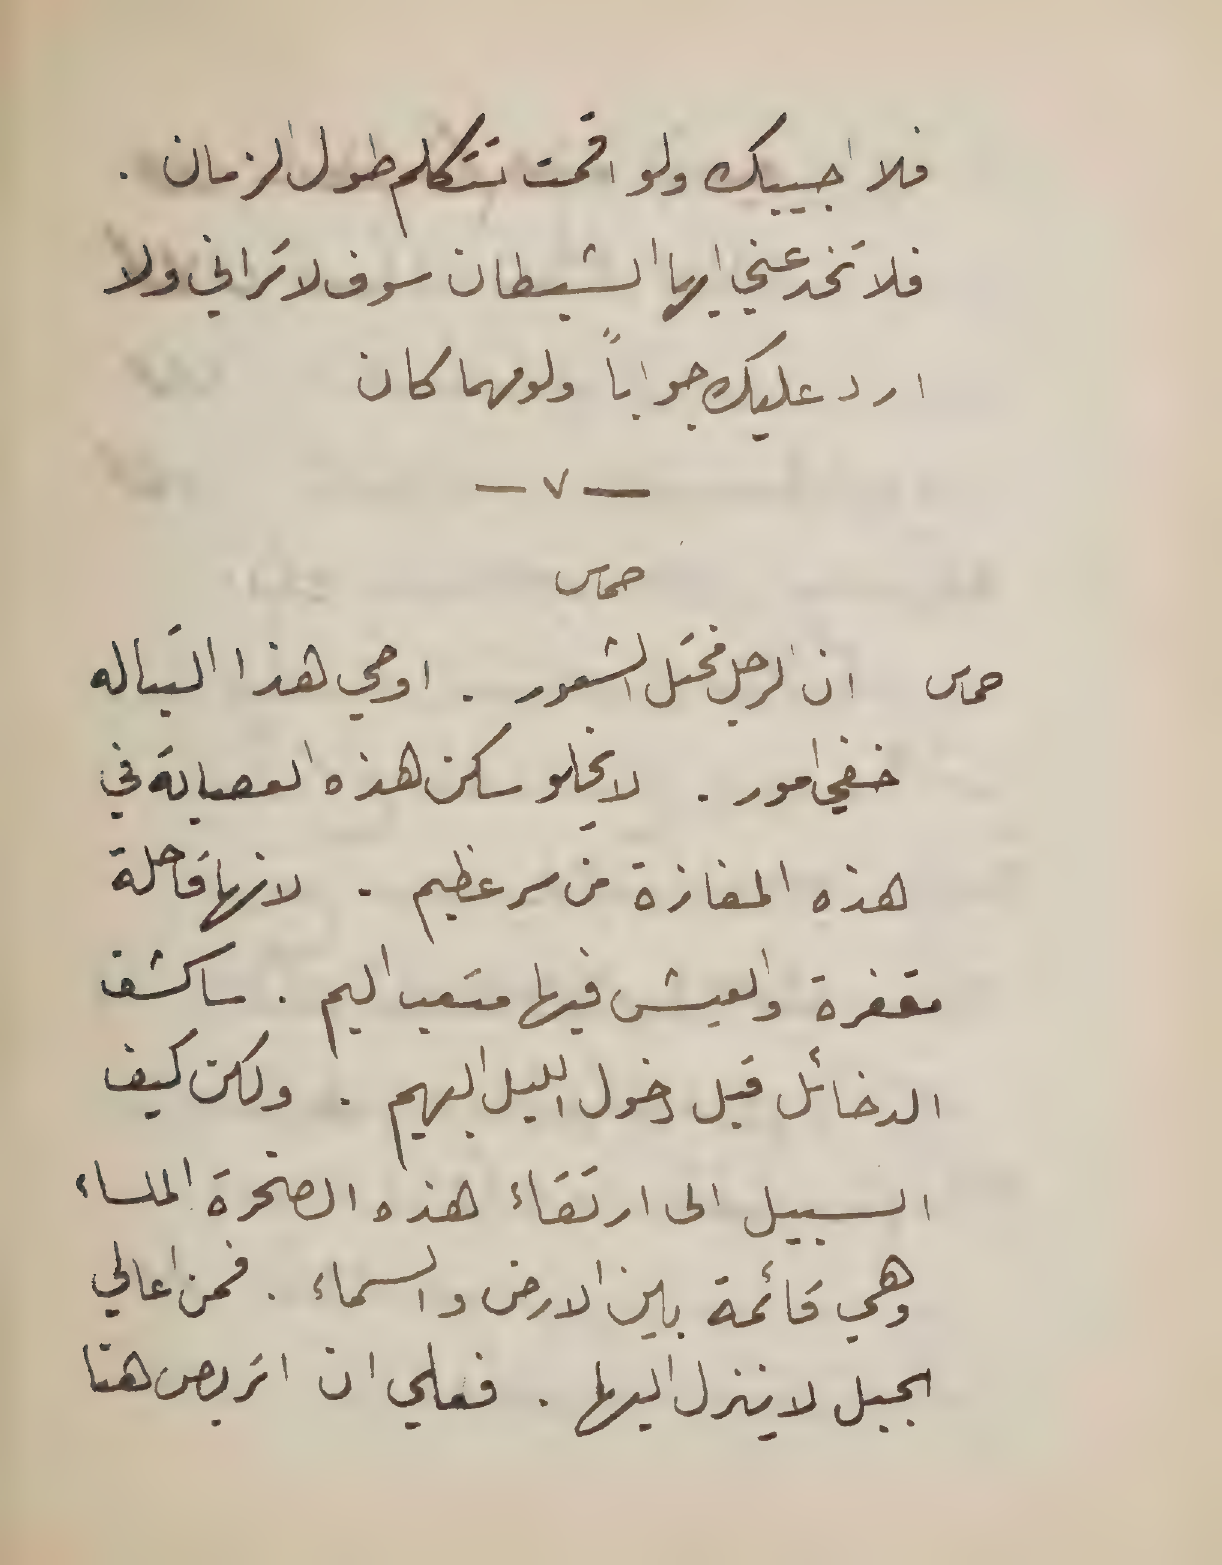 فلا اجيبك ولو اقمت تتكلم طول الزمان .
فلا تخدعني ايها الشيطان سوف لا تراني ولا
ارد عليك جواباً ولو مهما كان
— ٧ —
حماس
حماس ان الرجل مختل الشعور . او حي هذا التباله
خفي امور . لا يخلو سكن هذه العصابة في
هذه المغازة من سر عظيم . لانها قاحلة
مقفرة والعيش فيها متعب اليم . ساكشف
الدخائل قبل دخول الليل البهيم . ولكن كيف
السبيل الى ارتقاء هذه الصخرة الملساء
وهي قائمة بين الارض والسماء . فمن اعالي
الجبل لا ينزل اليها . فعلي ان اتربص هنا